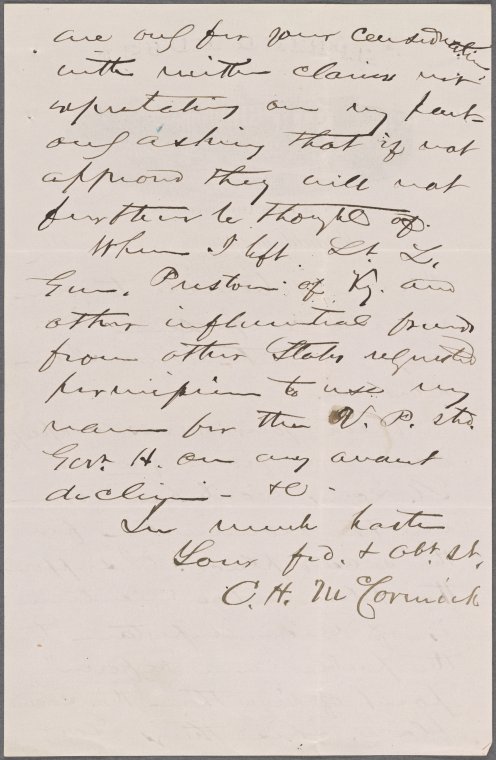 are only for your consideration,
with neither claims nor
expectation on my part—
only asking that if not
approved they will not
further be thought of.
When I left St. L.
Gen. Preston of Ky. and
other influential friends
from other States requested
permission to use my
name for the V. P. shd.
Govr. H. on any account
decline — &c —
In much haste
Your frd. & Obt. St.
C. H. McCormick